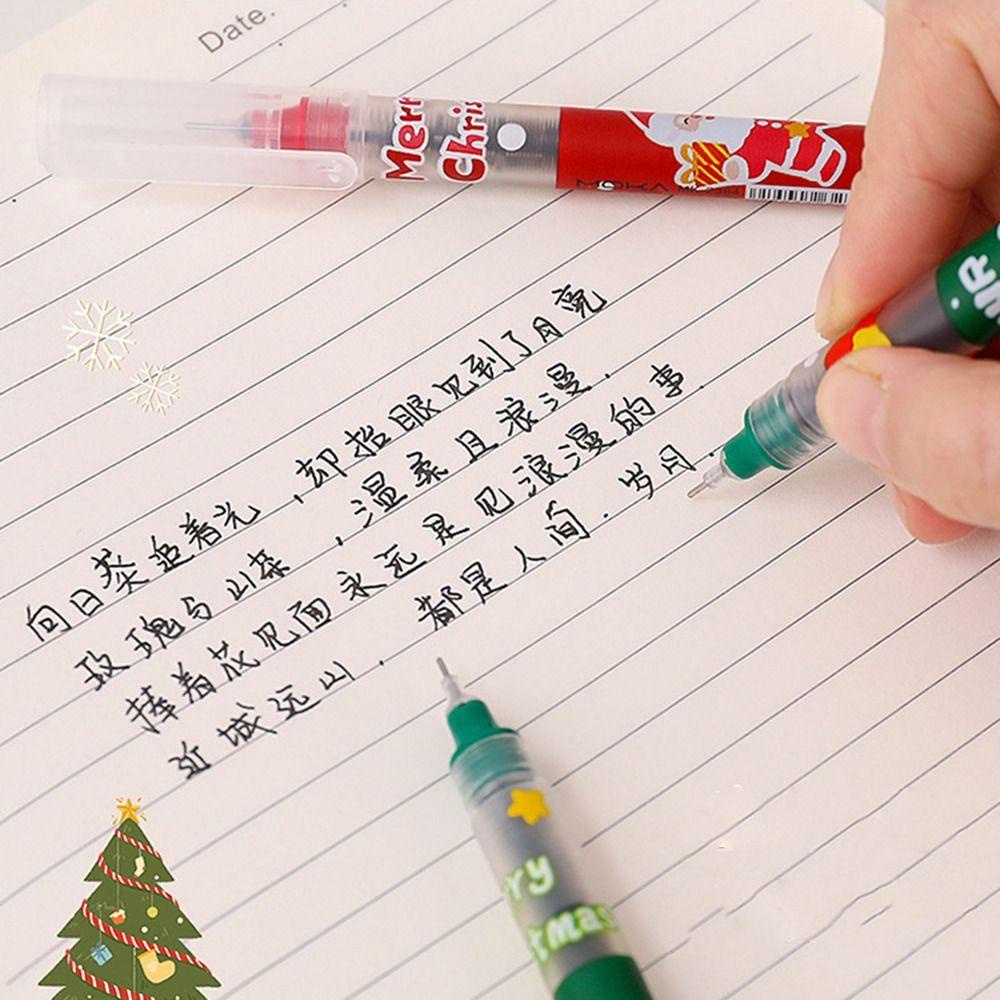 Date.
Merr
Chris
向日葵追着光，却抬眼见到了月亮
玫瑰与山茶，温柔且浪漫.
捧着花见面永远是见浪漫的事.
近城远山. 都是人间. 岁月.
rry
tmas